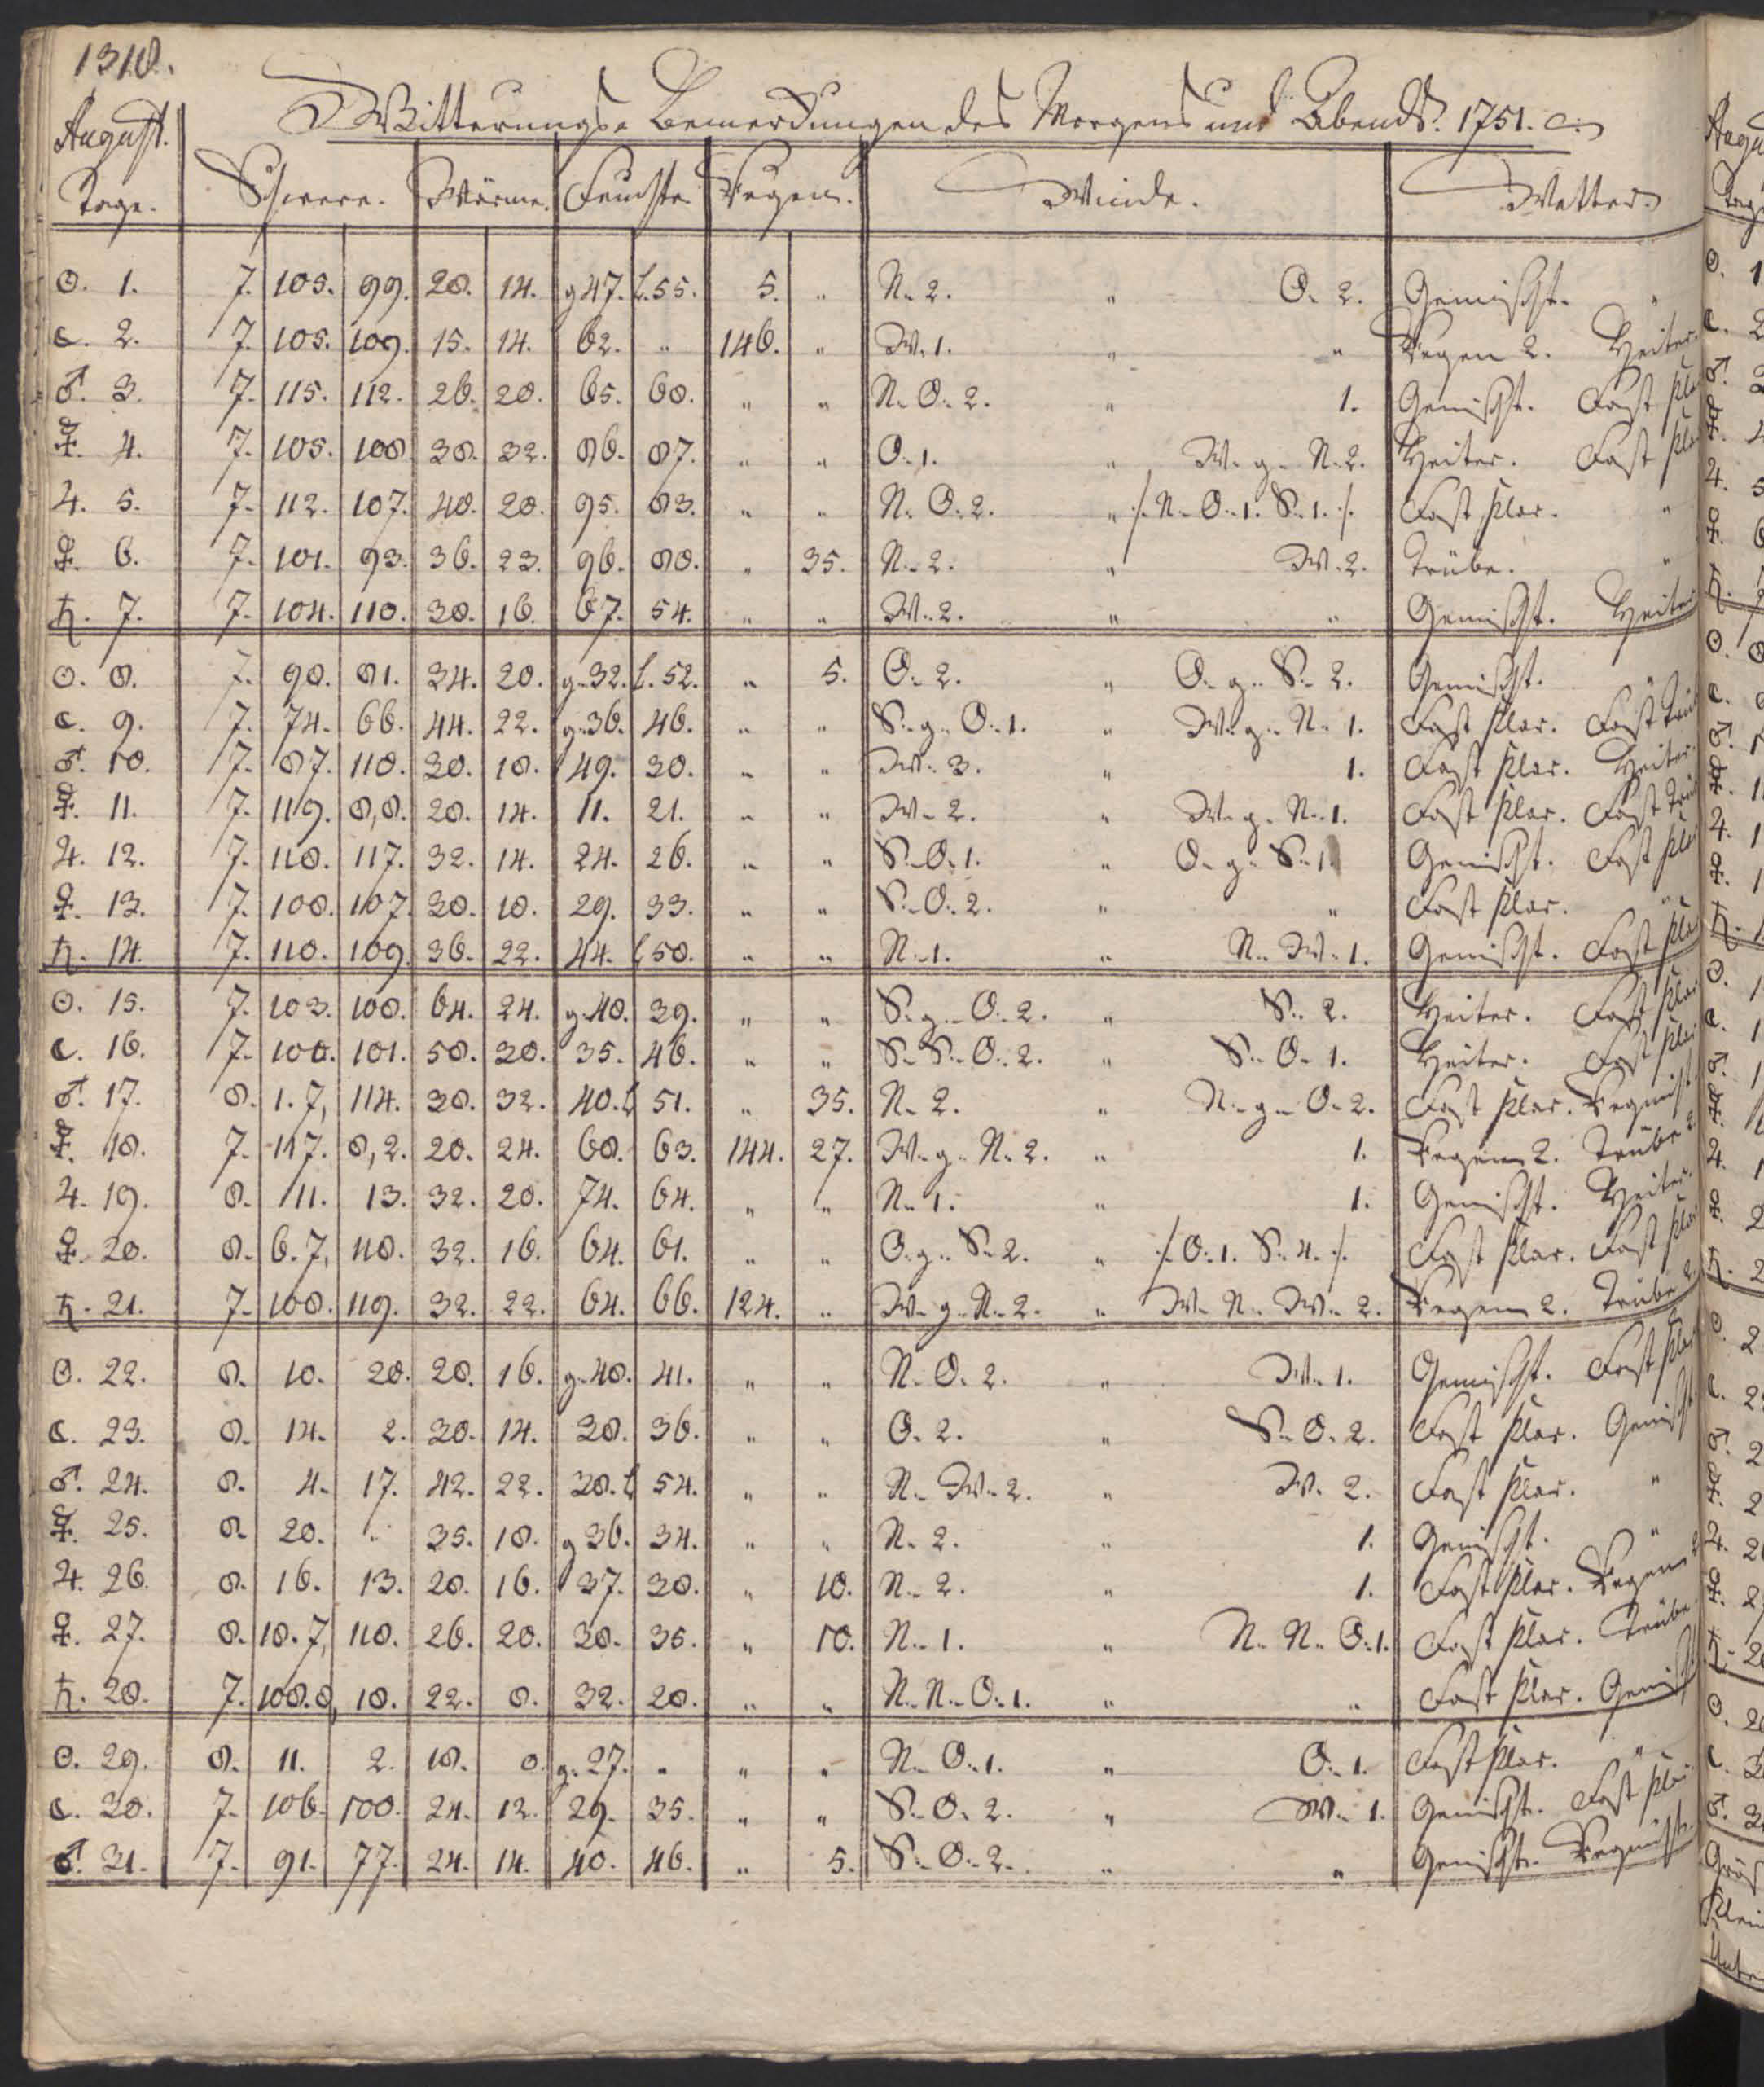 1318.
August. Witterungs-Bemerckungen des Morgens und Abends. 1751.
Tage. Schwere. Wärme. Feuchte Regen. Winde. Wetter.
☉. 1. 7. 105. 99. 28. 14. g 47. l. 55. 5. „ N. 2. „ O. 2. Gemischt. „
☾. 2. 7. 105. 109. 15. 14. 62. „ 146. „ W. 1. „ „ Regen 2. Heiter.
♂. 3. 7. 115. 112. 26. 20. 65. 68. „ „ N. O. 2. „ 1. Gemischt. Fast klar
☿. 4. 7. 105. 108. 38. 32. 86. 87. „ „ O. 1. „ W. g. N. 2. Heiter. Fast klar
♃. 5. 7. 112. 107. 48. 28. 95. 83. „ „ N. O. 2. „ /. N. O. 1. S. 1. /. Fast klar. „
♀. 6. 7. 101. 93. 36. 23. 96. 88. „ 35. N. 2. „ W. 2. Trübe. „
♄. 7. 7. 104. 110. 38. 16. 67. 54. „ „ W. 2. „ „ Gemischt. Heiter
☉. 8. 7. 98. 81. 34. 20. g. 32. l. 52. „ 5. O. 2. „ O. g. S. 2. Gemischt. „
☾. 9. 7. 74. 66. 44. 22. g. 36. 46. „ „ S. g. O. 1. „ W. g. N. 1. Fast klar. Fast Trüb
♂. 10. 7. 87. 118. 30. 18. 49. 30. „ „ W. 3. „ 1. Fast klar. Heiter.
☿. 11. 7. 119. 8, 8. 28. 14. 11. 21. „ „ W. 2. „ W. g. N. 1. Fast klar. Fast Trüb
♃. 12. 7. 118. 117. 32. 14. 24. 26. „ „ S. O. 1. „ O. g. S. 1. Gemischt. Fast klar
♀. 13. 7. 108. 107. 30. 18. 29. 33. „ „ S. O. 2. „ „ Fast klar. „
♄. 14. 7. 110. 109. 36. 22. 44. l 50. „ „ N. 1. „ N. W. 1. Gemischt. Fast klar
☉. 15. 7. 103. 100. 64. 24. g. 40. 39. „ „ S. g. O. 2. „ S. 2. Heiter. Fast klar
☾. 16. 7. 100. 101. 58. 30. 35. 46. „ „ S. S. O. 2. „ S. O. 1. Heiter. Fast klar
♂. 17. 8. 1. 7, 114. 38. 32. 40. l 51. „ 35. N. 2. „ N. g. O. 2. Fast klar. Regnigt
☿. 18. 7. 117. 8, 2. 28. 24. 68. 63. 144. 27. W. g. N. 2. „ 1. Regen 2. Trübe 2
♃. 19. 8. 11. 13. 32. 20. 74. 64. „ „ N. 1. „ 1. Gemischt. Heiter.
♀. 20. 8. 6. 7, 118. 32. 16. 64. 61. „ „ O. g. S. 2. „ /. O. 1. S. 4. /. Fast klar. Fast klar
♄. 21. 7. 108. 119. 32. 22. 64. 66. 124. „ W. g. N. 2. „ W. N. W. 2. Regen 2. Trübe 2.
☉. 22. 8. 10. 20. 28. 16. g. 48. 41. „ „ N. O. 2. „ W. 1. Gemischt. Fast klar
☾. 23. 8. 14. 2. 30. 14. 38. 36. „ „ O. 2. „ S. O. 2. Fast klar. Gemischt
♂. 24. 8. 4. 17. 42. 22. 38. l 54. „ „ N. W. 2. „ W. 2. Fast klar. „
☿. 25. 8. 20. „ 35. 18. g 36. 34. „ „ N. 2. „ 1. Gemischt. „
♃. 26. 8. 16. 13. 28. 16. 37. 30. „ 10. N. 2. „ 1. Fast klar. Regen 2
♀. 27. 8. 10. 7, 118. 26. 20. 38. 35. „ 10. N. 1. „ N. N. O. 1. Fast klar. Trübe
♄. 28. 7. 108. 8, 10. 22. 8. 32. 28. „ „ N. N. O. 1. „ „ Fast klar. Gemischt
☉. 29. 8. 11. 2. 18. 0. g. 27. „ „ „ N. O. 1. „ O. 1. Fast klar. „
☾. 30. 7. 106. 100. 24. 12. 29. 35. „ „ S. O. 2. „ W. 1. Gemischt. Fast klar
♂. 31. 7. 91. 77. 24. 14. 40. 46. „ 5. S. O. 2. „ „ Gemischt. Regnigt.